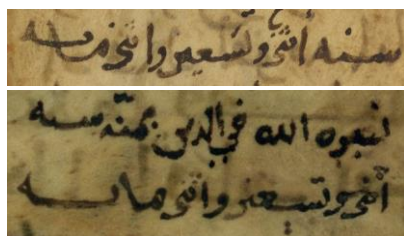 سنه اثنى وتسعين واثنى مايه
بصره الله في الدين بمنه سنه
اثنى وتسعين واثنى مايه